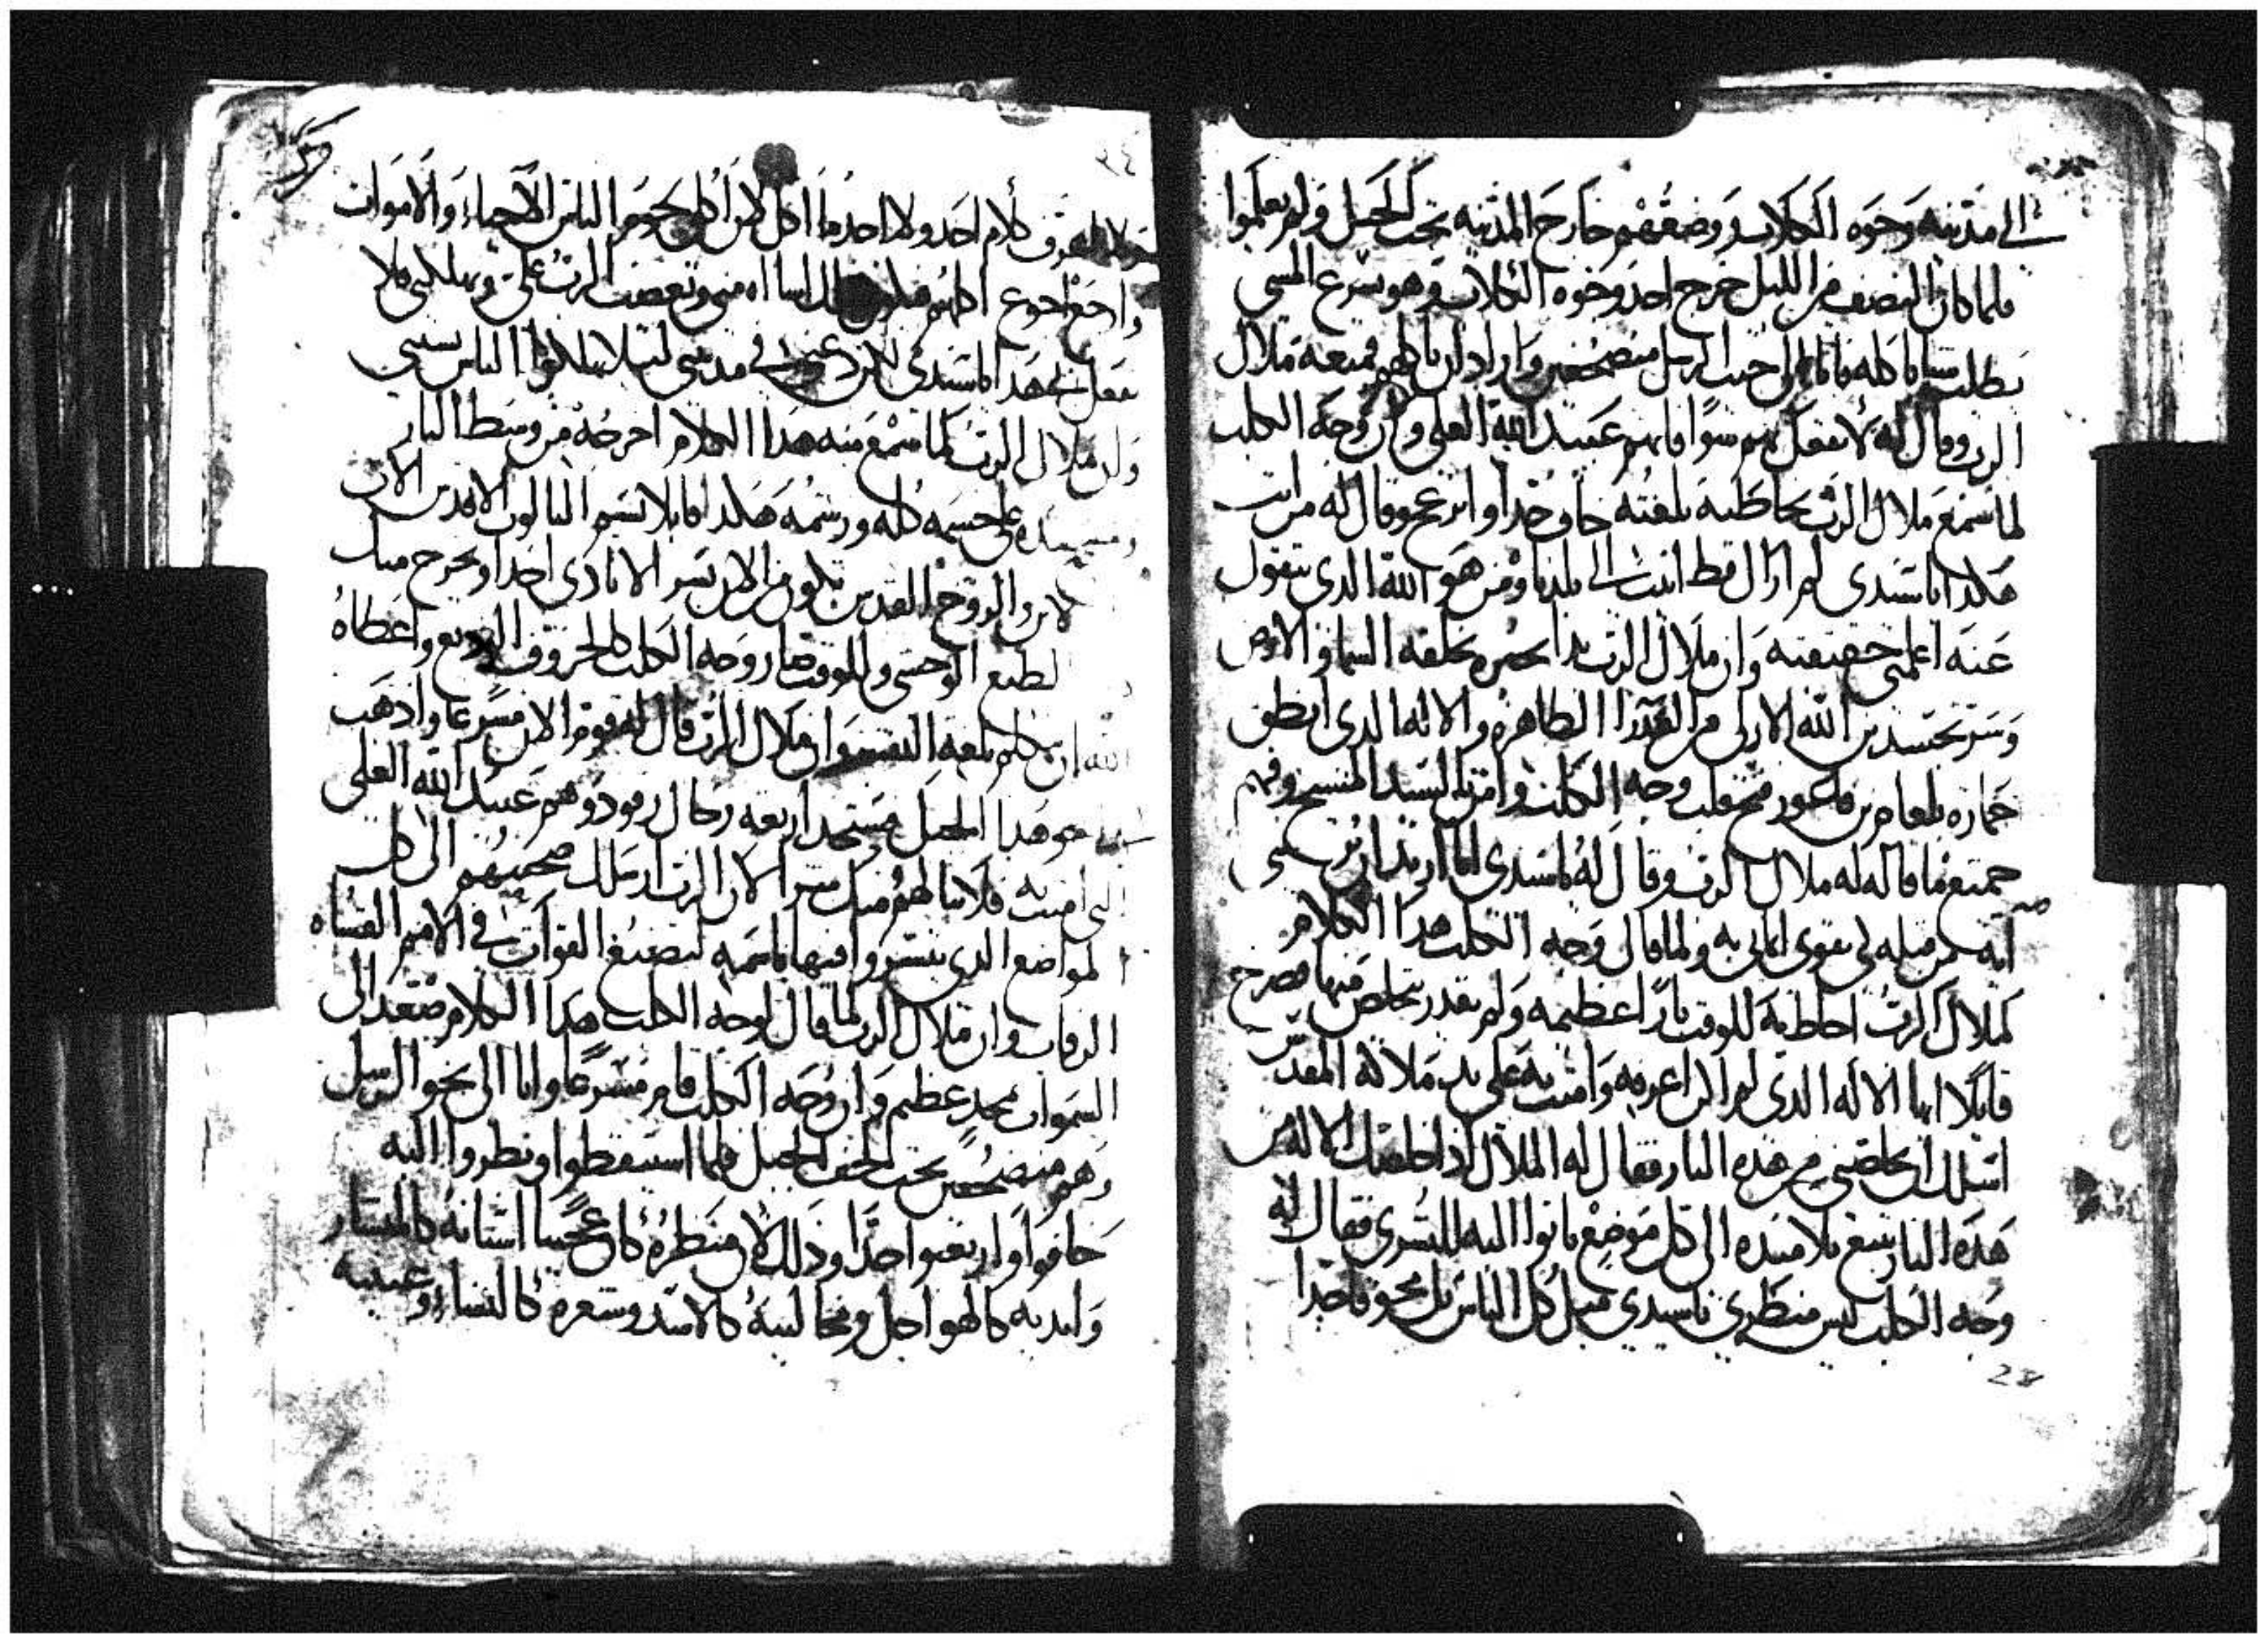 الى مدينه وجوه الكلاب ووضعهم خارج المدينه تحت الجبل ولم يعلموا
فلما كان النصف من الليل خرج احد وجوه الكلاب وهو يسرع المشي
يطلب شيا ياكله فاتا الى حيث الرسل منضجعين واراد ان ياكلهم فمنعه ملاك
الرب وقال له لا تفعل بهم سوا فانهم عبيد الله العلي وان وجه الكلب
لما سمع ملاك الرب يخاطبه بلغته خاف جدا وانزعج وقال له من انت
هكدا يا سيدي لم ازال قط اتيت الى بلدنا ومن هو الله الدي تقول
عنه اعلمني حقيقته وان ملاك الرب بدا يخبره بخلقه السما والارض
وسر تجسد بن الله الازلي من العدرا الطاهره والاله الدي انطق
حماره بلعام بن فاعور فتح قلب وجه الكلب وامن بالسيد المسيح وفهم
جميع ما قاله له ملاك الرب وقال له يا سيدي انا اريد ان تريني
ايه من قبله لي يقوى اماني به ولما قال وجه الكلب هدا الكلام
لملاك الرب احاط به للوقت نارا عظيمه ولم يقدر يتخلص منها فصرخ
قايلا ايها الاله الدي لم اكن اعرفه وامنت به على يد ملاكه المقدس
اسلك ان تخلصني من هده النار فقال له الملاك ادا خلصك الاله من
هده النار تتبع تلاميده الى كل موضع ياتوا اليه للبشرى فقال له
وجه الكلب ليس منظري يا سيدي مثل كل الناس بل مخوفا جدا
ولا اعرف كلام احد ولا احد ما اكل لان اكلي لحوم الناس الاحيا والاموات
وادا جعت اجوع اكلهم فيكون دلك اسااه مني ويغضب الرب علي ويهلكني فلا
تفعل بي هدا يا سيدي لكن دعني في مدينتي ليلا يهلكوا الناس بسببي
وان ملاك الرب لما سمع منه هدا الكلام اخرجه من وسط النار
يده على جسمه كله ورشمه هكدا قايلا بسم التالوت الاقدس الاب
الابن والروح القدس تكون من الان بسر الا تادي احدا ويخرج منك
لطبع الوحشي وللوقت صار وجه الكلب كالخروف الوديع واعطاه
الله ان يتكلم بلغه التفسير وان ملاك الرب قال له قوم الان مسرعا وادهب
نحو هدا الجبل فستجد اربعه رجال رقود وهم عبيد الله العلي
الدي امنت به فلا ينالهم منك سر الان الرب ارسلك صحبتهم الى كل
لمواضع الدي يبشروا فيها باسمه لتصنع القوات في الامم القساه
الرقاب وان ملاك الرب لما قال لوجه الكلب هدا الكلام صعد الى
السموات بمجد عظيم وان وجه الكلب قام مسرعا واتا الى نحو الرسل
وهم منضجعين تحت لحف الجبل فلما استيقظوا ونظروا اليه
خافوا وارتعبوا جدا ودلك لان منظره كان عجيبا اسنانه كالمنشار
وايديه كالهو اجل ومخالبه كالاسد وشعره كالنسا وعينيه